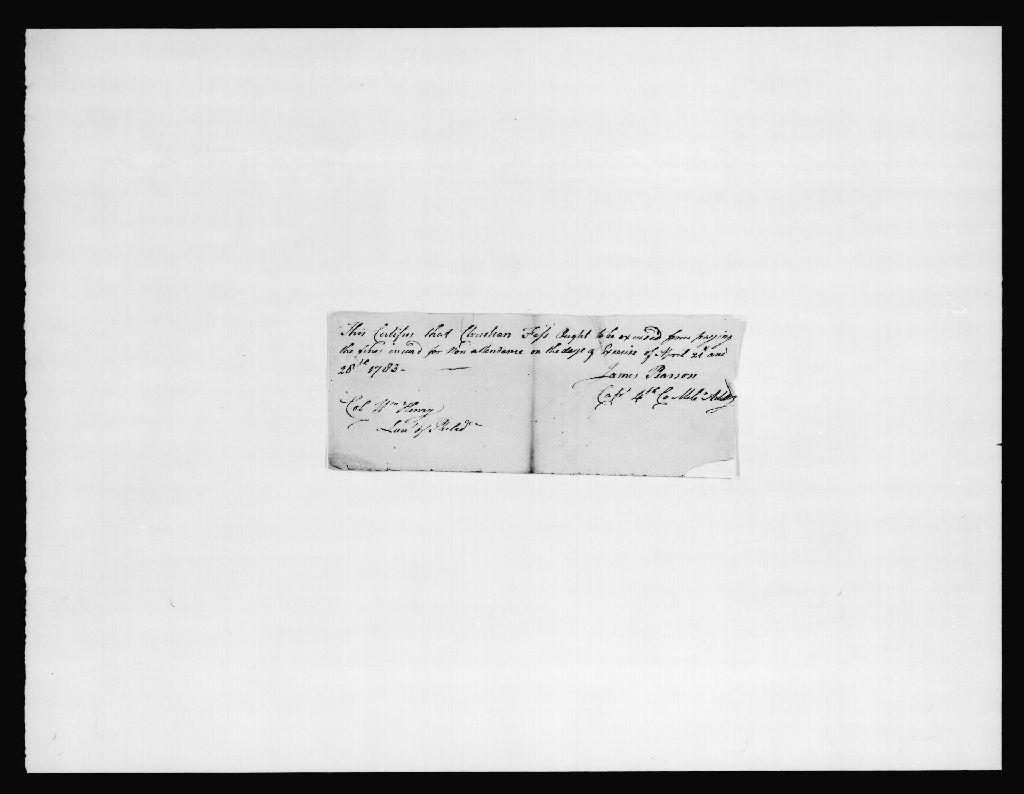 This Certifies that Christian Fess Ought to be excused from paying
the fines incured for Non attendance on the days of Exercise of April 21st and
28th 1783 —
James Pearson
Capt 4th Co Mila Artilly
Col Wm Henry
Lieut of Philada